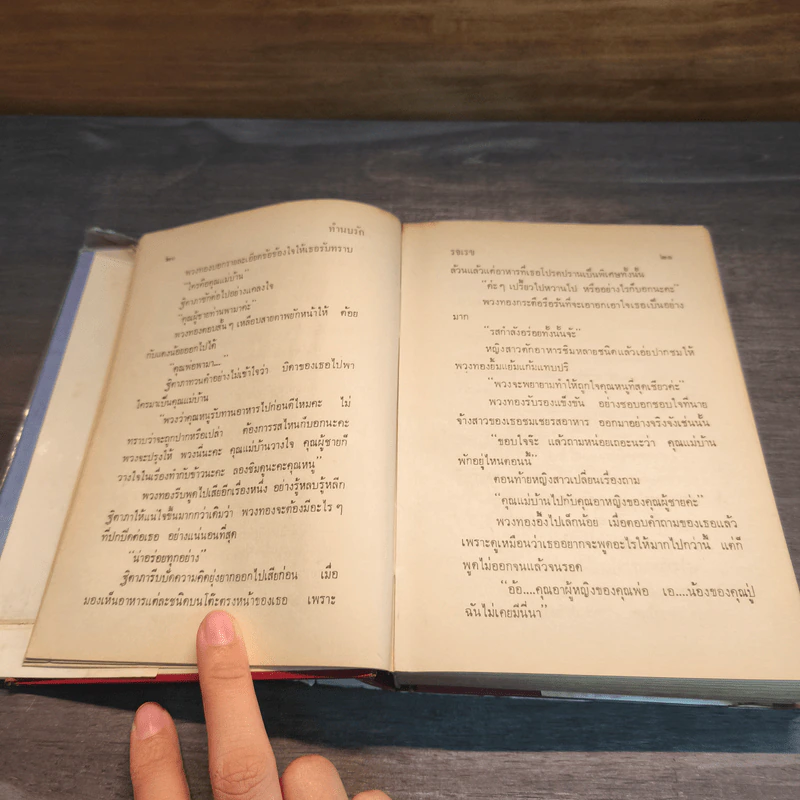 ๒๐ ทำนบรัก
พวงทองบอกรายละเอียดข้อข้องใจให้เธอรับทราบ
"ใครคือคุณแม่บ้าน"
ฐิตาภาซักต่อไปอย่างแคลงใจ
"คุณผู้ชายท่านพามาค่ะ"
พวงทองตอบสั้นๆ เหลือบสายตาพยักหน้าให้ ต้อย
กับแตงน้อยออกไปได้
"คุณพ่อพามา..."
ฐิตาภาทวนคำอย่างไม่เข้าใจว่า บิดาของเธอไปพา
ใครมาเป็นคุณแม่บ้าน
"พวงว่าคุณหนูรับทานอาหารไปก่อนดีไหมคะ ไม่
ทราบว่าจะถูกปากหรือเปล่า ต้องการรสไหนก็บอกนะคะ
พวงจะปรุงให้ พวงนี่นะคะ คุณแม่บ้านวางใจ คุณผู้ชายก็
วางใจในเรื่องทำกับข้าวนะคะ ลองชิมดูนะคะคุณหนู"
พวงทองรีบพูดไปเสียอีกเรื่องหนึ่ง อย่างรู้หลบรู้หลีก
ฐิตาภาให้แน่ใจขึ้นมากกว่าเดิมว่า พวงทองจะต้องมีอะไรๆ
ที่ปกปิดต่อเธอ อย่างแน่นอนที่สุด
"น่าอร่อยทุกอย่าง"
ฐิตาภารีบปัดความคิดยุ่งยากออกไปเสียก่อน เมื่อ
มองเห็นอาหารแต่ละชนิดบนโต๊ะตรงหน้าของเธอ เพราะ
รชเรข ๒๑
ล้วนแล้วแต่อาหารที่เธอโปรดปรานเป็นพิเศษทั้งนั้น
"ค่ะๆ เปรี้ยวไปหวานไป หรืออย่างไรก็บอกนะคะ"
พวงทองกระตือรือร้นที่จะเอาอกเอาใจเธอเป็นอย่าง
มาก
"รสกำลังอร่อยทั้งนั้นจ้ะ"
หญิงสาวตักอาหารชิมหลายชนิดแล้วเอ่ยปากชมให้
พวงทองยิ้มแย้มแก้มแทบปริ
"พวงจะพยายามทำให้ถูกใจคุณหนูที่สุดเชียวค่ะ"
พวงทองรับรองแข็งขัน อย่างชอบอกชอบใจที่นาย
จ้างสาวของเธอชมเชยรสอาหาร ออกมาอย่างจริงจังเช่นนั้น
"ขอบใจจ๊ะ แล้วถามหน่อยเถอะนะว่า คุณแม่บ้าน
พักอยู่ไหนตอนนี้"
ตอนท้ายหญิงสาวเปลี่ยนเรื่องถาม
"คุณแม่บ้านไปกับคุณอาหญิงของคุณผู้ชายค่ะ"
พวงทองอึ้งไปเล็กน้อย เมื่อตอบคำถามของเธอแล้ว
เพราะดูเหมือนว่าเธออยากจะพูดอะไรให้มากไปกว่านี้ แต่ก็
พูดไม่ออกจนแล้วจนรอด
"อ้อ....คุณอาผู้หญิงของคุณพ่อ เอ....น้องของคุณปู่
ฉันไม่เคยมีนี่นา"